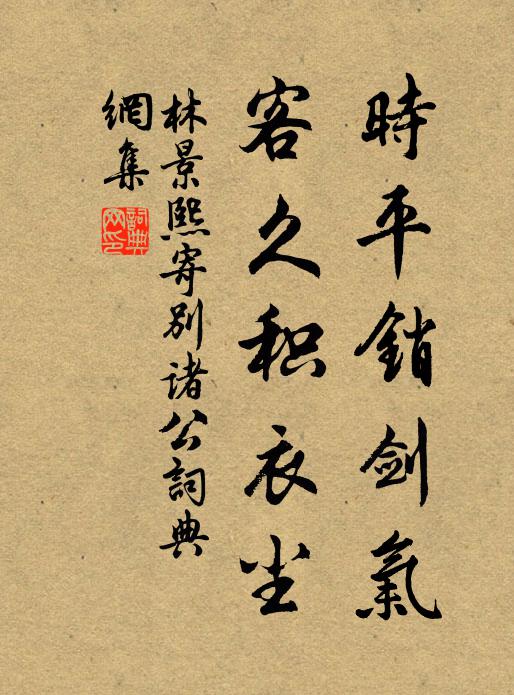 時平銷劍氣
客久积衣尘
林景熙寄别诸公詞典
網集
詞典网印